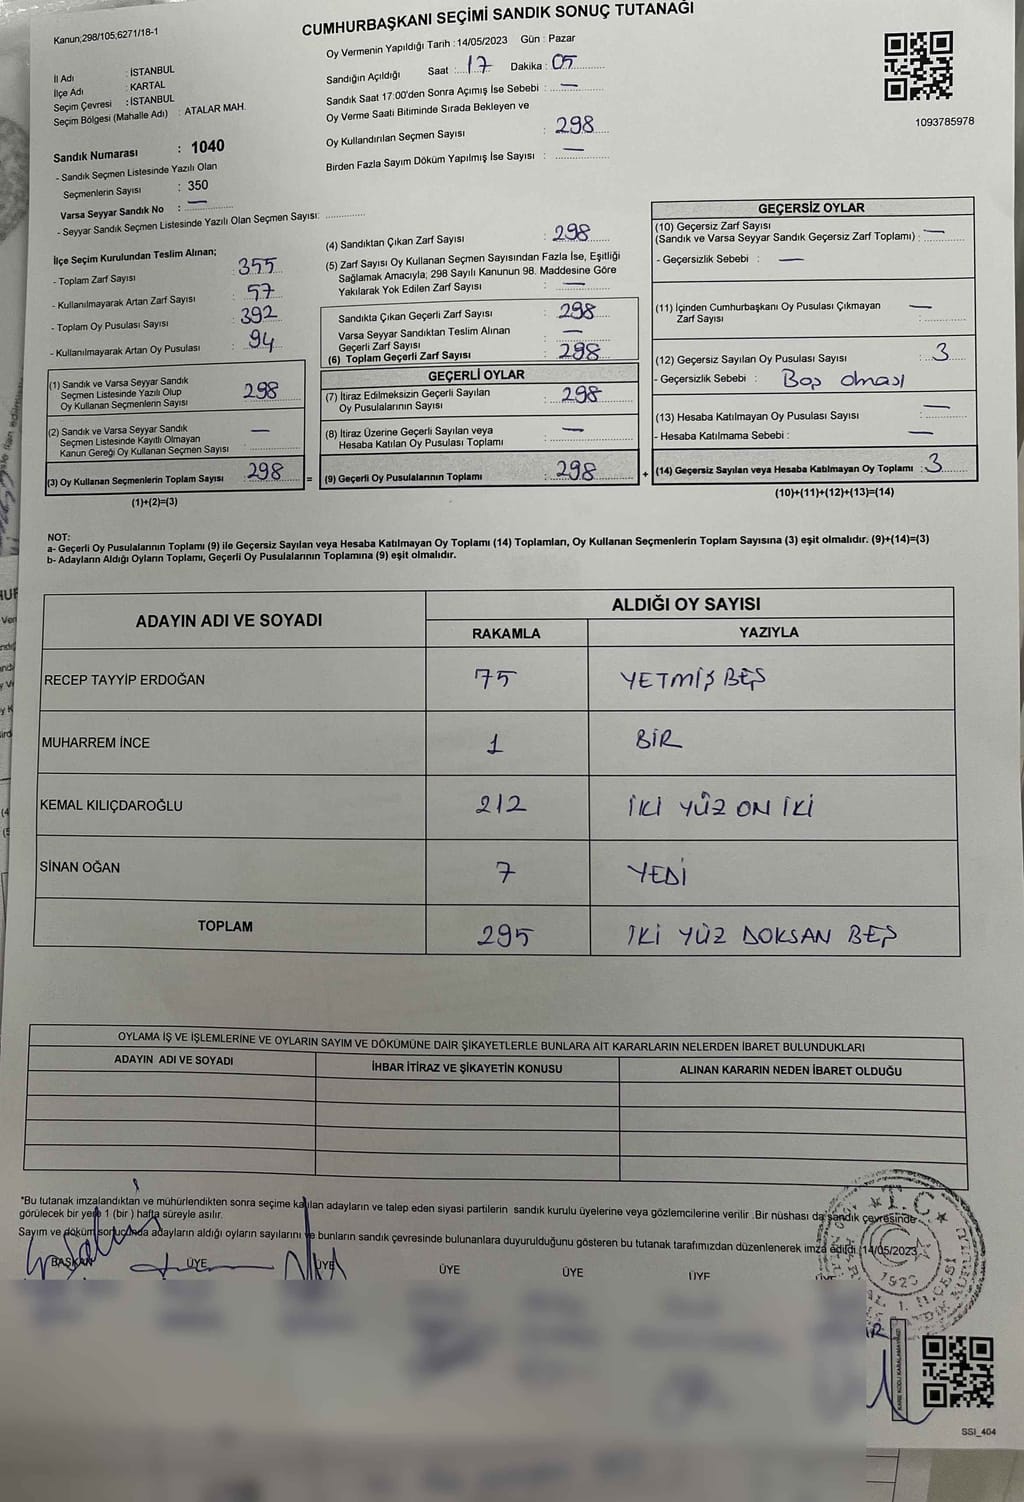 Kanun;298/105,6271/18-1
CUMHURBAŞKANI SEÇİMİ SANDIK SONUÇ TUTANAĞI
Oy Vermenin Yapıldığı Tarih : 14/05/2023 Gün : Pazar
Sandığın Açıldığı Saat : 17 Dakika : 05
Sandık Saat 17:00'den Sonra Açımış İse Sebebi : —
Oy Verme Saati Bitiminde Sırada Bekleyen ve
Oy Kullandırılan Seçmen Sayısı : 298
Birden Fazla Sayım Döküm Yapılmış İse Sayısı : —
1093785978
İl Adı : İSTANBUL
İlçe Adı : KARTAL
Seçim Çevresi : İSTANBUL
Seçim Bölgesi (Mahalle Adı) : ATALAR MAH.
Sandık Numarası : 1040
- Sandık Seçmen Listesinde Yazılı Olan
Seçmenlerin Sayısı : 350
Varsa Seyyar Sandık No : —
- Seyyar Sandık Seçmen Listesinde Yazılı Olan Seçmen Sayısı:
İlçe Seçim Kurulundan Teslim Alınan;
- Toplam Zarf Sayısı : 355
- Kullanılmayarak Artan Zarf Sayısı : 57
- Toplam Oy Pusulası Sayısı : 392
- Kullanılmayarak Artan Oy Pusulası : 94
(1) Sandık ve Varsa Seyyar Sandık
Seçmen Listesinde Yazılı Olup
Oy Kullanan Seçmenlerin Sayısı : 298
(2) Sandık ve Varsa Seyyar Sandık
Seçmen Listesinde Kayıtlı Olmayan
Kanun Gereği Oy Kullanan Seçmen Sayısı : —
(3) Oy Kullanan Seçmenlerin Toplam Sayısı : 298 =
(1)+(2)=(3)
(4) Sandıktan Çıkan Zarf Sayısı : 298
(5) Zarf Sayısı Oy Kullanan Seçmen Sayısından Fazla İse, Eşitliği
Sağlamak Amacıyla; 298 Sayılı Kanunun 98. Maddesine Göre
Yakılarak Yok Edilen Zarf Sayısı : —
Sandıkta Çıkan Geçerli Zarf Sayısı : 298
Varsa Seyyar Sandıktan Teslim Alınan
Geçerli Zarf Sayısı : —
(6) Toplam Geçerli Zarf Sayısı : 298
GEÇERLİ OYLAR
(7) İtiraz Edilmeksizin Geçerli Sayılan
Oy Pusulalarının Sayısı : 298
(8) İtiraz Üzerine Geçerli Sayılan veya
Hesaba Katılan Oy Pusulası Toplamı : —
(9) Geçerli Oy Pusulalarının Toplamı : 298 +
GEÇERSİZ OYLAR
(10) Geçersiz Zarf Sayısı
(Sandık ve Varsa Seyyar Sandık Geçersiz Zarf Toplamı) : —
- Geçersizlik Sebebi : —
(11) İçinden Cumhurbaşkanı Oy Pusulası Çıkmayan
Zarf Sayısı : —
(12) Geçersiz Sayılan Oy Pusulası Sayısı : 3
- Geçersizlik Sebebi : Boş olması
(13) Hesaba Katılmayan Oy Pusulası Sayısı : —
- Hesaba Katılmama Sebebi : —
(14) Geçersiz Sayılan veya Hesaba Katılmayan Oy Toplamı : 3
(10)+(11)+(12)+(13)=(14)
NOT:
a- Geçerli Oy Pusulalarının Toplamı (9) ile Geçersiz Sayılan veya Hesaba Katılmayan Oy Toplamı (14) Toplamları, Oy Kullanan Seçmenlerin Toplam Sayısına (3) eşit olmalıdır. (9)+(14)=(3)
b- Adayların Aldığı Oyların Toplamı, Geçerli Oy Pusulalarının Toplamına (9) eşit olmalıdır.
ADAYIN ADI VE SOYADI
ALDIĞI OY SAYISI
RAKAMLA YAZIYLA
RECEP TAYYİP ERDOĞAN 75 YETMİŞ BEŞ
MUHARREM İNCE 1 BİR
KEMAL KILIÇDAROĞLU 212 İKİ YÜZ ON İKİ
SİNAN OĞAN 7 YEDİ
TOPLAM 295 İKİ YÜZ DOKSAN BEŞ
OYLAMA İŞ VE İŞLEMLERİNE VE OYLARIN SAYIM VE DÖKÜMÜNE DAİR ŞİKAYETLERLE BUNLARA AİT KARARLARIN NELERDEN İBARET BULUNDUKLARI
ADAYIN ADI VE SOYADI İHBAR İTİRAZ VE ŞİKAYETİN KONUSU ALINAN KARARIN NEDEN İBARET OLDUĞU
*Bu tutanak imzalandıktan ve mühürlendikten sonra seçime katılan adayların ve talep eden siyasi partilerin sandık kurulu üyelerine veya gözlemcilerine verilir .Bir nüshası da sandık çevresinde
görülecek bir yere 1 (bir ) hafta süreyle asılır.
Sayım ve döküm sonucunda adayların aldığı oyların sayılarını ve bunların sandık çevresinde bulunanlara duyurulduğunu gösteren bu tutanak tarafımızdan düzenlenerek imza edildi.(14/05/2023
BAŞKAN ÜYE ÜYE ÜYE ÜYE ÜYE
T.C.
1923
SSI_404